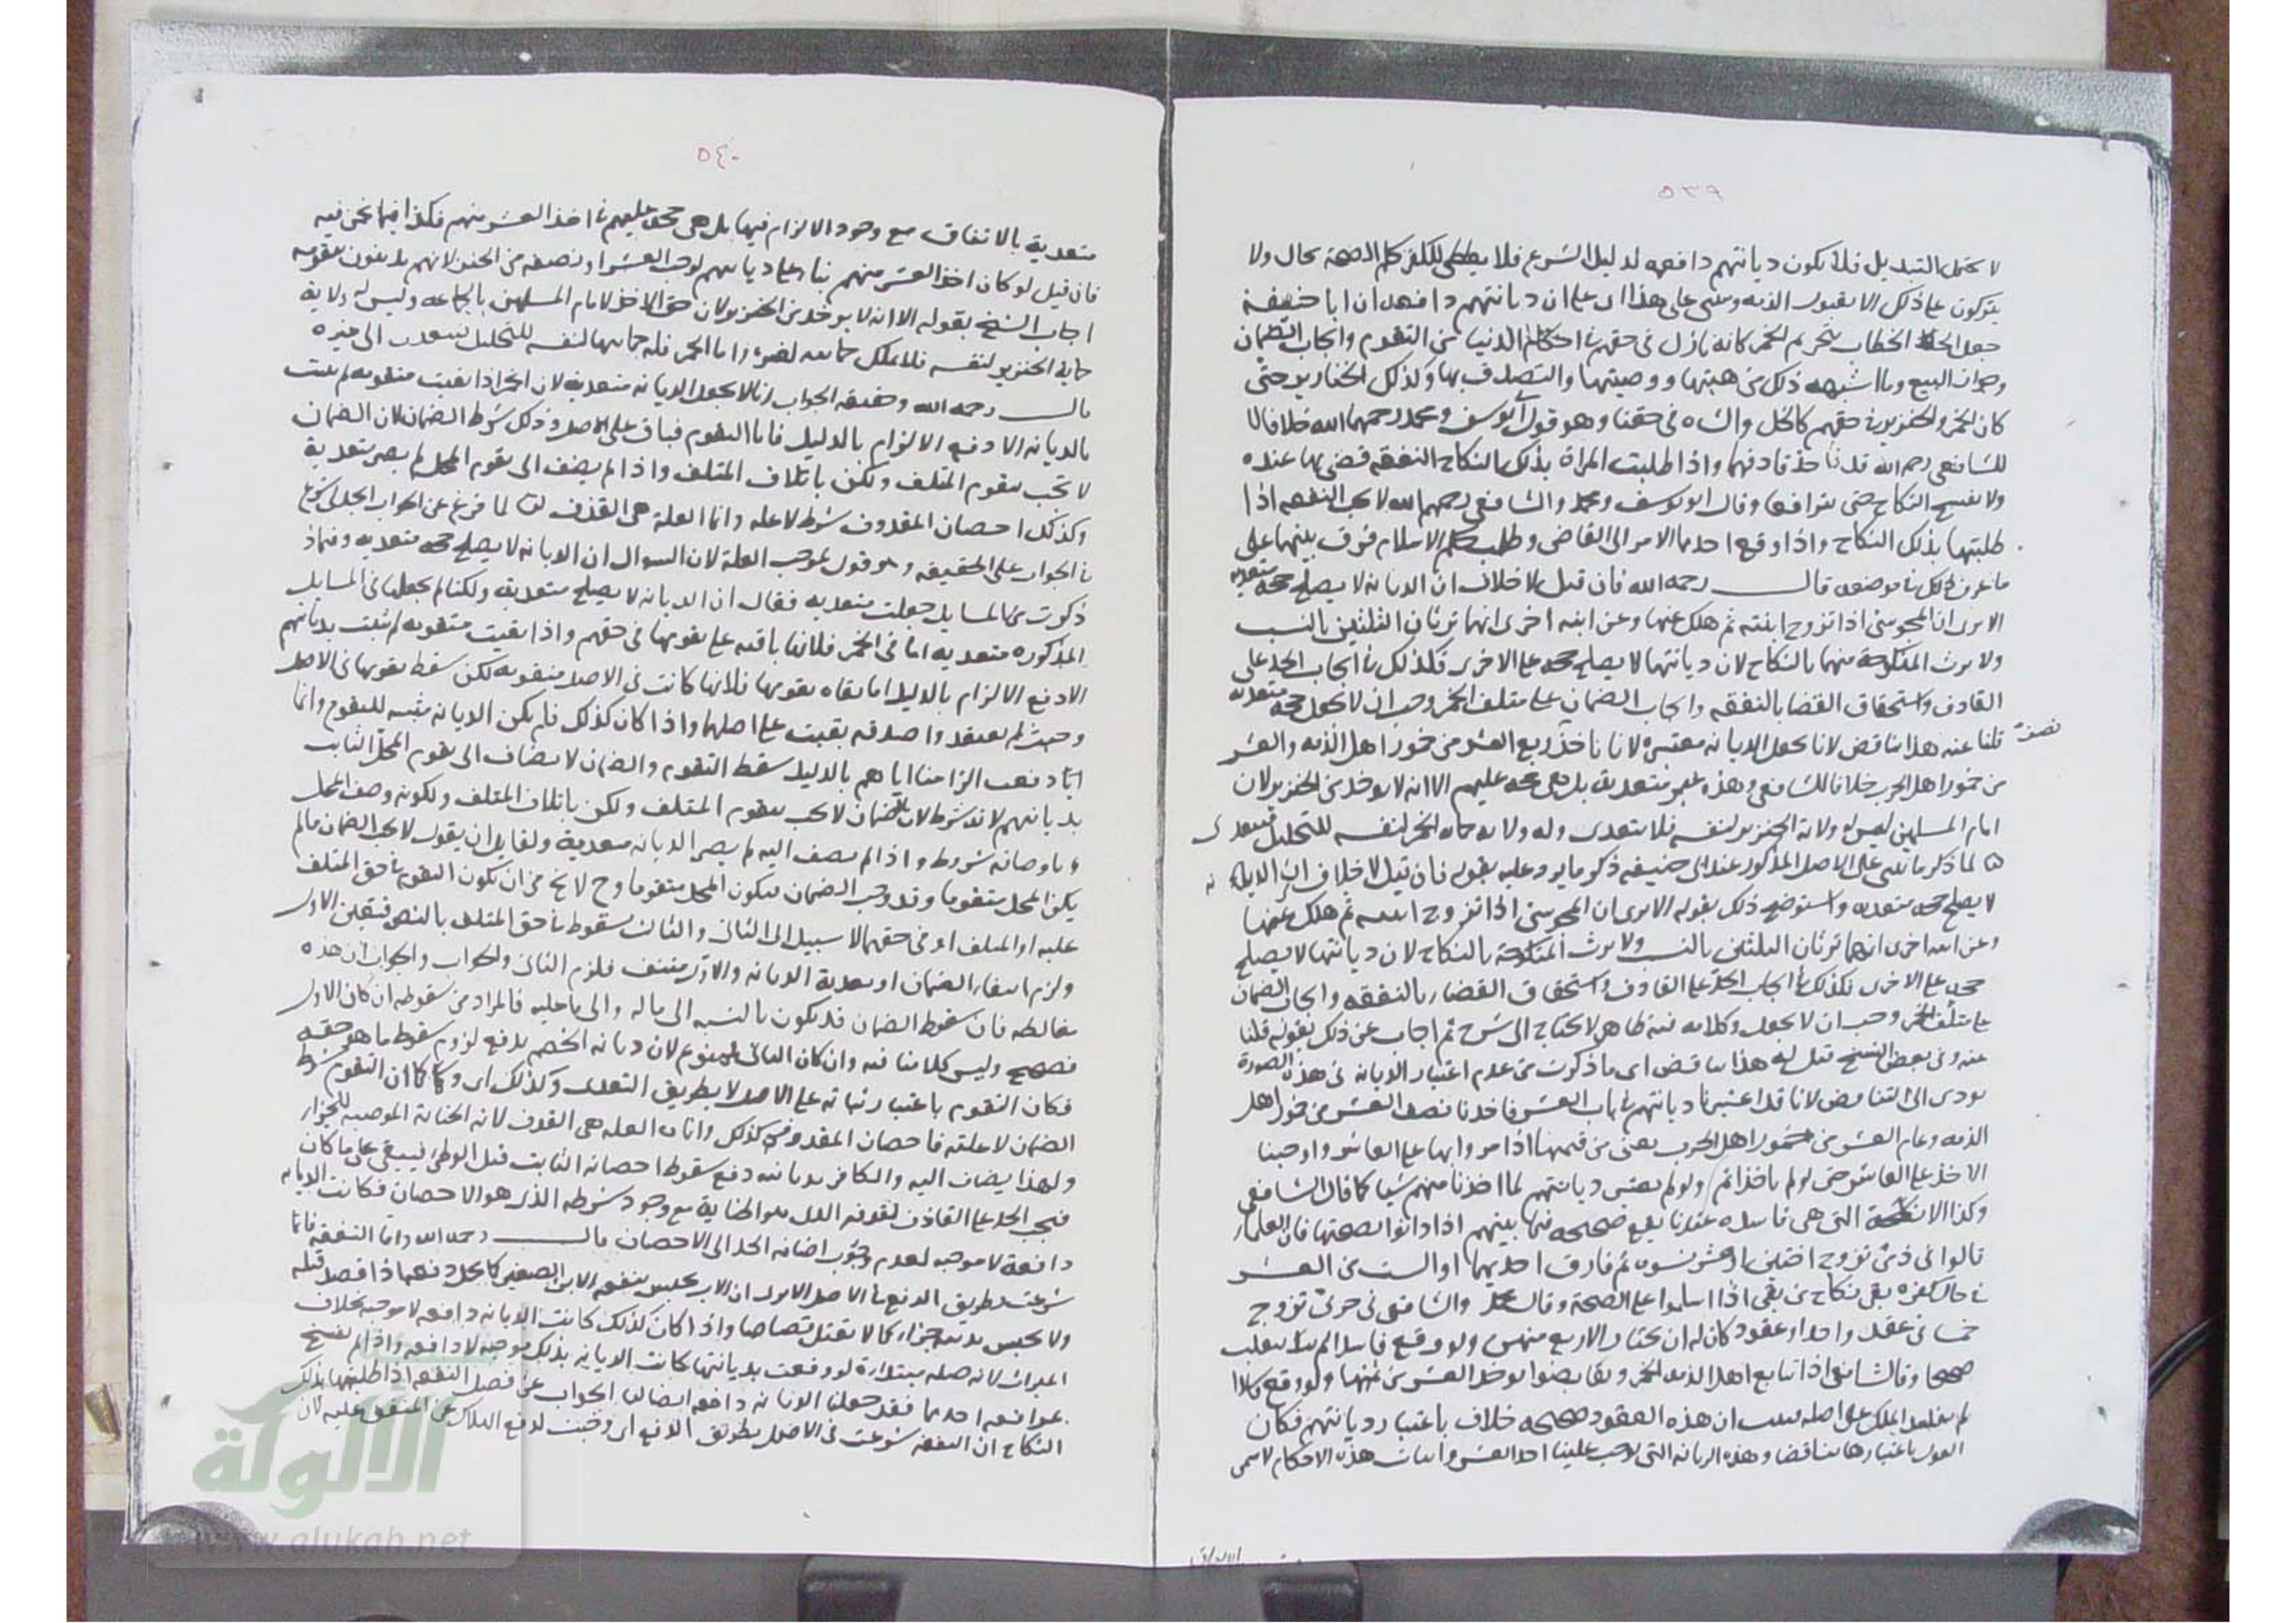 ٥٣٩
لا يحتمل التبديل فلا تكون ديانتهم دافعة لدليل الشرع فلا يعطى للكفر حكم الصحة بحال ولا
يتركون على ذلك الا بقبول الذمة ويبتنى على هذا اى على ان ديانتهم دافعة ان ابا حنيفة
جعل الخطاب بتحريم الخمر كانه نازل فى حقهم فى احكام الدنيا من التقوم وايجاب الضمان
وجواز البيع وما اشبه ذلك من هبتها ووصيتها والتصدق بها وكذلك الخنازير حتى
كان الخمر والخنزير فى حقهم كالخل والشاة فى حقنا وهو قول ابو يوسف ومحمد رحمهما الله خلافا لا
للشافعى رحمه الله قد قاذفهما واذا طلبت المراة بذلك النكاح النفقة قضى بها عنده
ولا يفسخ النكاح حتى يترافعا وقال ابو يوسف ومحمد والشافعى رحمهم الله لا يجب النفقة اذا
طلبتها بذلك النكاح واذا رفع احدهما الامر الى القاضى وطلب حكم الاسلام فرق بينهما على
ما عرف ذلك فى موضعه قال رحمه الله فان قيل لا خلاف ان الديانة لا يصلح حجة متعدية
الا يرى ان المجوسى اذا تزوج ابنته ثم هلك عنها وعن ابنة اخرى انهما ترثان الثلثين بالنسب
ولا يرث المنكوحة منهما بالنكاح لان ديانتها لا يصلح حجة على الاخرى فكذلك فى ايجاب الحد على
القاذف واستحقاق القضا بالنفقة وايجاب الضمان على متلف الخمر وجب ان لا يجعل حجة متعدية
قلنا عنه هذا تناقض لانا نجعل الديانة معتبرة لانا ناخذ ربع العشر من خمور اهل الذمة والعشر
نصف
من خمور اهل الحرب خلافا للشافعى وهذه غير متعدية بل هى حجة عليهم الا انه لا يوخذ من الخنزير لان
امام المسلمين ليس له ولاية الخنزير لنفسه فلا يتعدى وله ولاية حماية الخمر لنفسه للتخليل فيتعدى
لما ذكر ما يبتنى على الاصل المذكور عند ابى حنيفة ذكر ما يرد عليه بقوله فان قيل لا خلاف ان الديانة
لا يصلح حجة متعدية واستوضح ذلك بقوله الا يرى ان المجوسى اذا تزوج ابنته ثم هلك عنها
وعن ابنة اخرى انهما ترثان الثلثين بالنسب ولا يرث المنكوحة بالنكاح لان ديانتها لا يصلح
حجة على الاخرى فكذلك فى ايجاب الحد على القاذف واستحقاق القضاء بالنفقة وايجاب الضمان
على متلف الخمر وجب ان لا يجعل وكلامه فيه ظاهر لا يحتاج الى شرح ثم اجاب عن ذلك بقوله قلنا
عنه وفى بعض النسخ قيل له هذا تناقض اى ما ذكرت من عدم اعتبار الديانة فى هذه الصورة
يودى الى التناقض لانا قد اعتبرنا ديانتهم فى باب العشر فاخذنا نصف العشر من خمور اهل
الذمة وتمام العشر من خمور اهل الحرب يعنى من قيمتها اذا مروا بها على العاشر واوجبنا
الاخذ على العاشر حتى لو لم ياخذ اثم ولو لم يعتبر ديانتهم لما اخذنا منهم شيا كما قال الشافعى
وكذا الانكحة التى هى فاسدة عندنا يقع صحيحة فيما بينهم اذا دانوا بصحتها فان العلماء
قالوا فى ذمى تزوج اختين او عشر نسوة ثم فارق احديهما او الست من العشر
فى حال كفره بقى نكاح من بقى اذا اسلموا على الصحة وقال محمد والشافعى فى حربى تزوج
خمسا فى عقد واحد او عقود كان له ان يختار الاربع منهن ولو وقع فاسدا لم ينقلب
صحيحا وقال الشافعى اذا تبايع اهل الذمة الخمر وتقابضوا يوخذ العشر من ثمنها ولو وقع باطلا
لم يفد الملك على اصله فثبت ان هذه العقود صحيحة خلاف باعتبار ديانتهم فكان
القول باعتبارها تناقضا وهذه الديانة التى يوجب علينا اخذ العشر واثبات هذه الاحكام لا سمى
٥٤٠
متعدية بالاتفاق مع وجود الالزام فيها بل هى حجة عليهم فى اخذ العشر منهم فكذا فيما نحن فيه
فان قيل لو كان اخذ العشر منهم بناء على ديانتهم لوجب العشر او نصفه من الخنزير لانهم يدينون بتقومه
اجاب الشيخ بقوله الا انه لا يوخذ من الخنزير لان حق الاخذ لامام المسلمين بالحماية وليس له ولاية
حماية الخنزير لنفسه فلا يملك حمايته لغيره واما الخمر فله حمايتها لنفسه للتخليل فيتعدى الى غيره
قال رحمه الله وحقيقة الجواب انا لا نجعل الديانة متعدية لان الخمر اذا بقيت متقومة لم يثبت
بالديانة الا دفع الالزام بالدليل فاما التقوم فباق على الاصل وذلك شرط الضمان لان الضمان
لا يجب بتقوم المتلف ولكن باتلاف المتلف واذا لم يضف الى تقوم المحل لم يصر متعدية
وكذلك احصان المقذوف شرط لا علة وانما العلة هى القذف لما فرغ عن الجواب الجدلى شرع
فى الجواب على الحقيقة وهو قول بموجب العلة لان السوال ان الديانة لا يصلح حجة متعدية وفيما
ذكرت من المسايل جعلت متعدية فقال ان الديانة لا يصلح متعدية ولكنا لم نجعلها فى المسايل
المذكورة متعدية اما فى الخمر فلانها باقية على تقومها فى حقهم واذا بقيت متقومة لم يثبت بديانتهم
الا دفع الالزام بالدليل اما بقاء تقومها فلانها كانت فى الاصل متقومة لكن سقط تقومها فى الاصل
وحيث لم يعتقدوا صدقه بقيت على اصلها واذا كان كذلك فلم يكن الديانة مثبتة للتقوم وانما
دفعت الزامنا اياهم بالدليل سقط التقوم والضمان لا يضاف الى تقوم المحل الثابت
بديانتهم لانه شرط لان الضمان لا يجب بتقوم المتلف ولكن باتلاف المتلف ولكونه وصف المحل
واوصافه شروط واذا لم يضف اليه لم يصر الديانة متعدية ولقايل ان يقول لا يجب الضمان مالم
يكن المحل متقوما وقد وجب الضمان فيكون المحل متقوما وح لا يخ من ان يكون التقوم فى حق المتلف
عليه او المتلف او فى حقهما لا سبيل الى الثانى والثالث لسقوط فى حق المتلف بالنص فتعين الاول
ولزم انتفاء الضمان او تعدية الديانة والاول منتف فلزم الثانى والجواب ان هذه
مغالطة فان سقوط الضمان قد يكون بالنسبة الى ماله والى ما عليه فالمراد من سقوطه ان كان الاول
فصحيح وليس كلامنا فيه وان كان الثانى فممنوع لان ديانة الخصم يدفع لزوم سقوط ما هو حقه
فكان التقوم باعتبار ثباته على الاصل لا بطريق التعدى وكذلك اى وكما ان التقوم شرط
الضمان لا علته فاحصان المقذوف كذلك وانما العلة هى القذف لانه الجناية الموجبة للجزاء
ولهذا يضاف اليه والكافر بديانته دفع سقوط احصانه الثابت قبل الوطئ فيبقى على ما كان
فيجب الحد على القاذف لقذفه الذى هو الجناية مع وجود شرطه الذى هو الاحصان فكانت الديانة
دافعة لا موجبة لعدم وجوب اضافة الحد الى الاحصان قال رحمه الله واما النفقة فانما
شرعت بطريق الدفع فى الاصل الا يرى ان الاب يحبس بنفقة الابن الصغير كما يحل دفعه اذا قصد قتله
ولا يحبس بدينه جزاء كما لا يقتل قصاصا واذا كان كذلك كانت الديانة دافعة لا موجبة بخلاف
الميراث لانه صلة مبتداة لو وقعت بديانتها كانت الديانة بذلك موجبة لا دافعة واذا لم يفسخ
بمرافعة احدهما فقد جعلنا الديانة دافعة ايضا الجواب عن فصل النفقة اذا طلبتها بذلك
النكاح ان النفقة شرعت فى الاصل بطريق الدفع اى وجبت لدفع الهلاك عن المنفق عليه لان
الألوكة
www.alukah.net